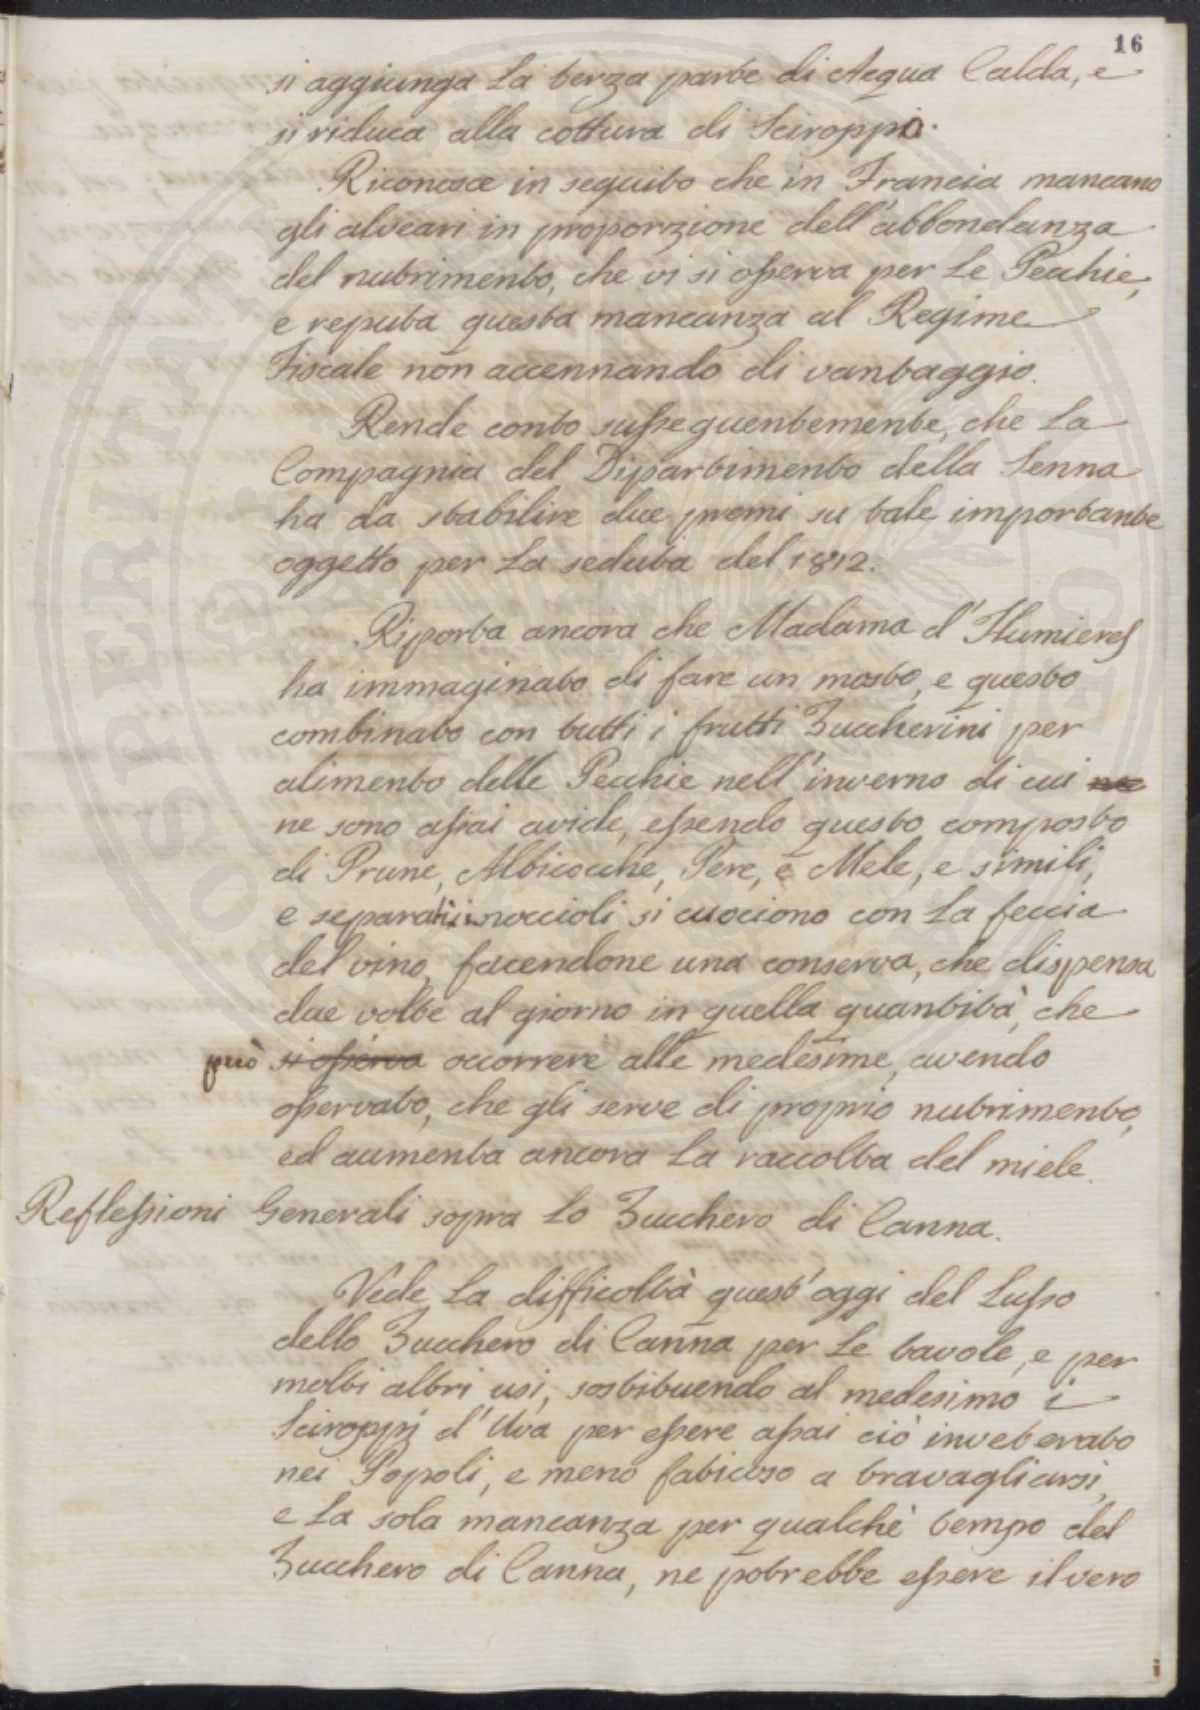 16
si aggiunga la terza parte di Acqua Calda, e
si riduca alla cottura di Sciroppo.
Riconosce in seguito che in Francia mancano
gli alveari in proporzione dell'abbondanza
del nutrimento, che vi si osserva per le Pecchie,
e reputa questa mancanza al Regime
Fiscale non accennando di vantaggio.
Rende conto susseguentemente, che la
Compagnia del Dipartimento della Senna
ha da stabilire due premi su tale importante
oggetto per la seduta del 1812.
Riporta ancora che Madama d'Humieres
ha immaginato di fare un mosto, e questo
combinato con tutti i frutti Zuccherini per
alimento delle Pecchie nell'inverno di cui
ne sono assai avide, essendo questo composto
di Prune, Albicocche, Pere, e Mele, e simili,
e separati i noccioli si cuociono con la feccia
del vino, facendone una conserva, che dispensa
due volte al giorno in quella quantità, che
può si osserva occorrere alle medesime, avendo
osservato, che gli serve di proprio nutrimento,
ed aumenta ancora la raccolta del miele.
Reflessioni Generali sopra lo Zucchero di Canna.
Vede la difficoltà quest'oggi del Lusso
dello Zucchero di Canna per le tavole, e per
molti altri usi, sostituendo al medesimo i
Sciroppj d'Uva per essere assai ciò inveterato
nei Popoli, e meno faticoso a travagliarsi,
e la sola mancanza per qualchè tempo del
Zucchero di Canna, ne potrebbe essere il vero
OSPERITATI VINCENDA